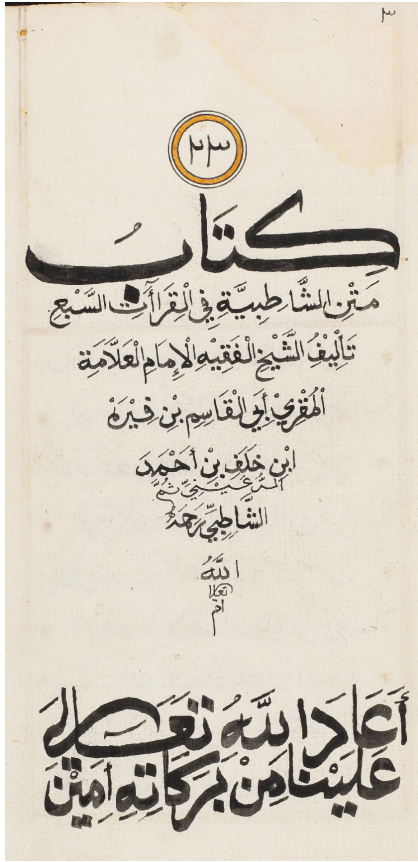 ٣
٢٣
كِتَابُ
مَتْنِ الشَّاطِبِيَّةِ فِي الْقِرَاآتِ السَّبْعِ
تَأْلِيْفُ الشَّيْخِ الْفَقِيْهِ الْإِمَامِ الْعَلَّامَةِ
الْمُقْرِيْ أَبِي الْقَاسِمِ بْنِ فِيْرُهْ
ابْنِ خَلَفِ بْنِ أَحْمَدَ
الرُّعَيْنِيّ ثُمَّ
الشَّاطِبِّي رَحِمَهُ
اللهُ
تعالا
ام
أَعَادَ اللهُ تَعَالَى
عَلَيْنَا مِنْ بَرَكَاتِهِ أَمِيْنَ